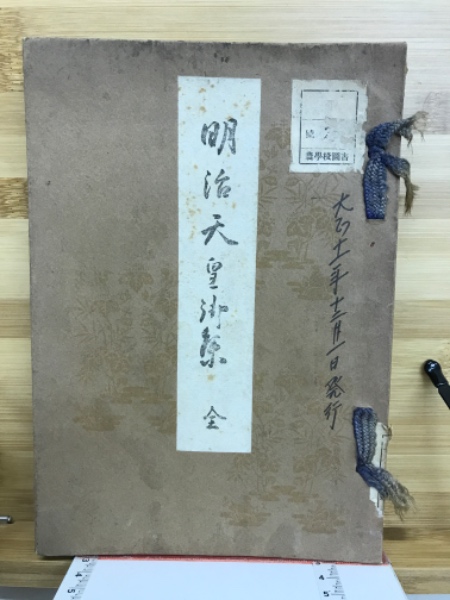 明治天皇御集 全
大正十一年十二月一日発行
古國校學農